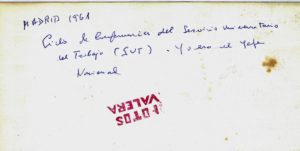 MADRID 1961
Ciclo de Conferencias del Servicio Universitario
del Trabajo (SUT). Yo era el Jefe
Nacional
FOTOS
VALERA